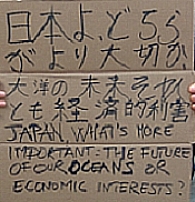 日本よ、どちら
がより大切か
大洋の未来それ
とも経済的利害
JAPAN, WHAT'S MORE
IMPORTANT: THE FUTURE
OF OUR OCEANS OR
ECONOMIC INTERESTS?